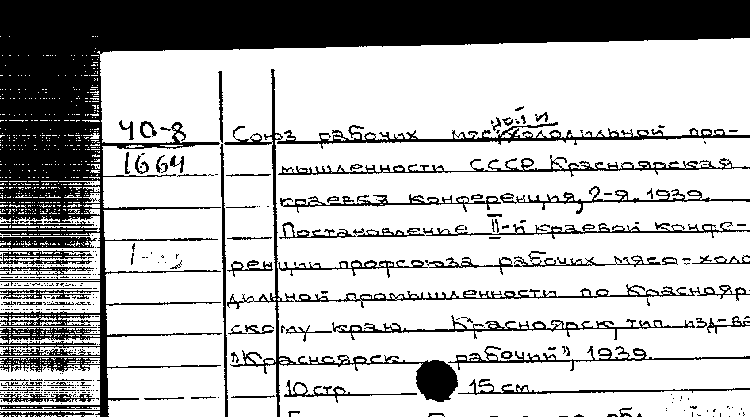 40-8
1664
ной и
Союз рабочих мясхолодильной про-
мышленности СССР. Красноярская
краевая конференция, 2-я. 1939.
Постановление II-й краевой конфе-
ренции профсоюза рабочих мясо-холо
дильной промышленности по Краснояр-
скому краю. Красноярск, тип. изд-ва
"Красноярск. рабочий", 1939.
10 стр. 15 см.